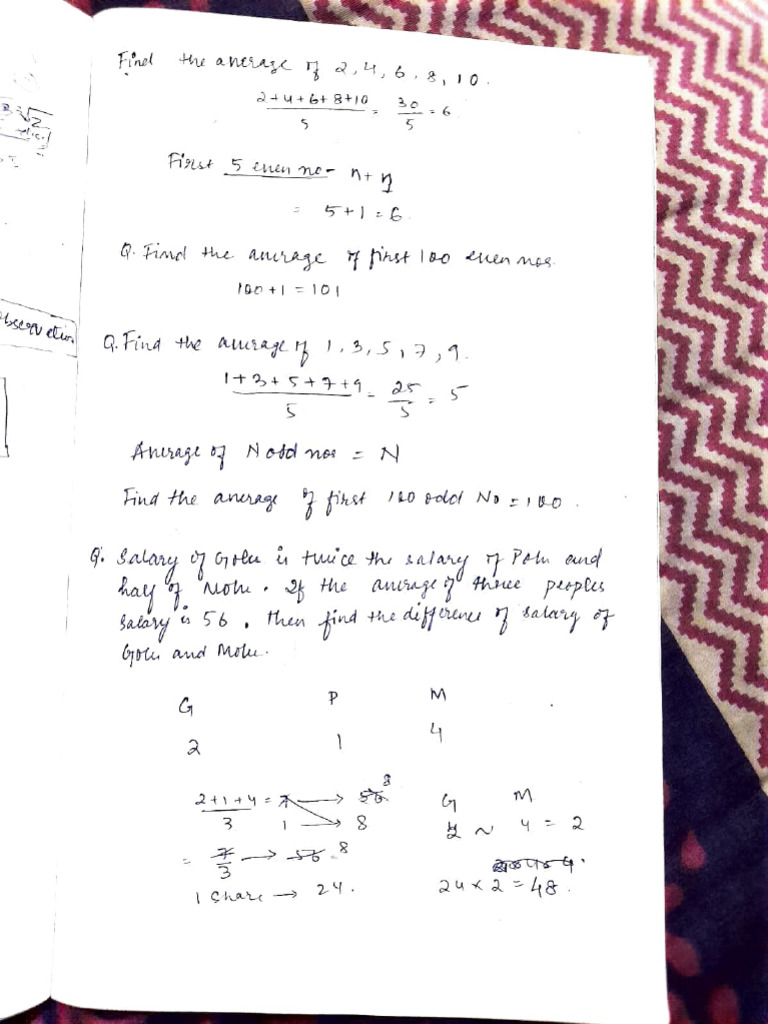 Find the average of 2, 4, 6, 8, 10.
2+4+6+8+10 = 30 = 6
5 5
First 5 even no - n+
= 5+1=6
Q. Find the average of first 100 even nos.
100+1 = 101
bservation
Q. Find the average of 1, 3, 5, 7, 9.
1+3+5+7+9 = 25 = 5
5 5
Average of N odd nos = N
Find the average of first 100 odd No = 100.
Q. Salary of Golu is twice the salary of Polu and
half of Molu. If the average of three peoples
salary is 56, then find the difference of salary of
Golu and Molu.
G P M
2 1 4
8
2+1+4 = 7 → 56 G M
3 1 → 8 2 ~ 4 = 2
= 7 → 56 8
3
1 share → 24. 24 x 2 = 48.